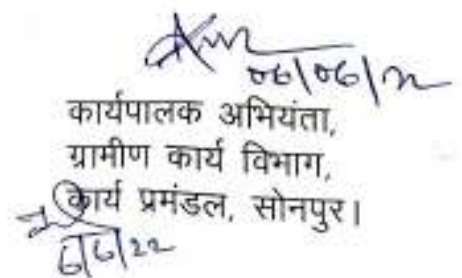 06/06/22
कार्यपालक अभियंता,
ग्रामीण कार्य विभाग,
कार्य प्रमंडल, सोनपुर।
6/6/22